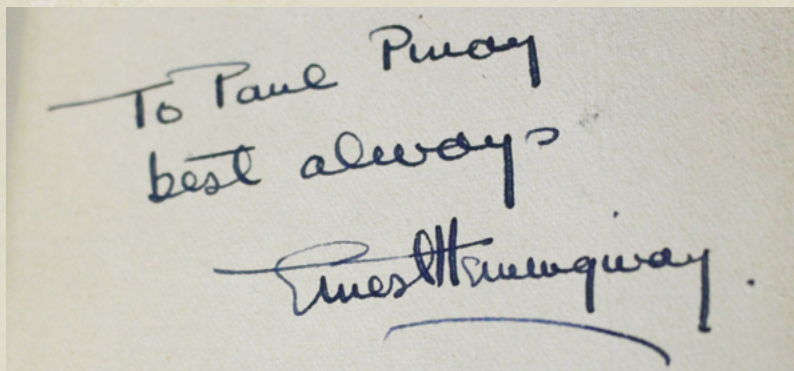 To Paul Pinay
best always
Ernest Hemingway.